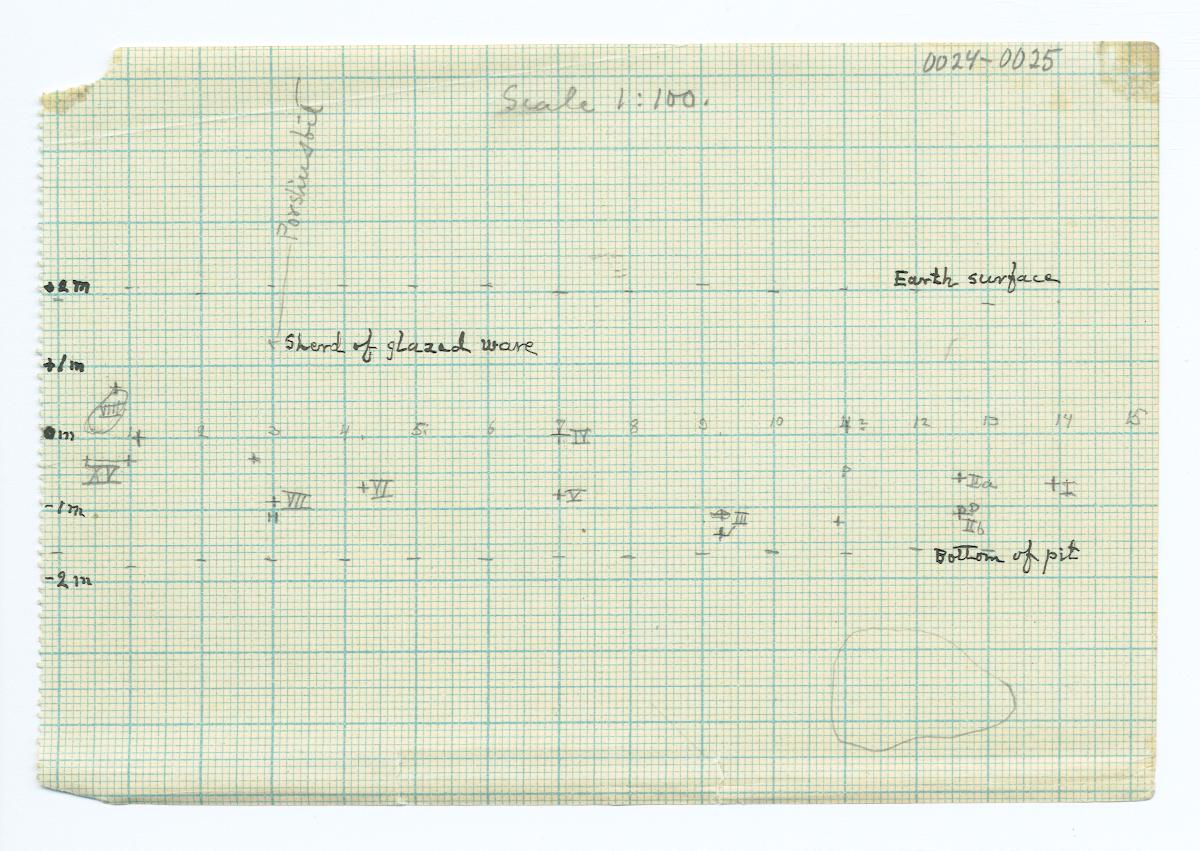 0024-0025
Scale 1:100.
Porslinsbit
+2m
Earth surface
Sherd of glazed ware
+1m
VIII
0m 1 2 3 4 5 6 7 8 9 10 11 12 13 14 15
IV
XV
VII
VI
V
IIa
I
-1m
III
IIb
Bottom of pit
-2m